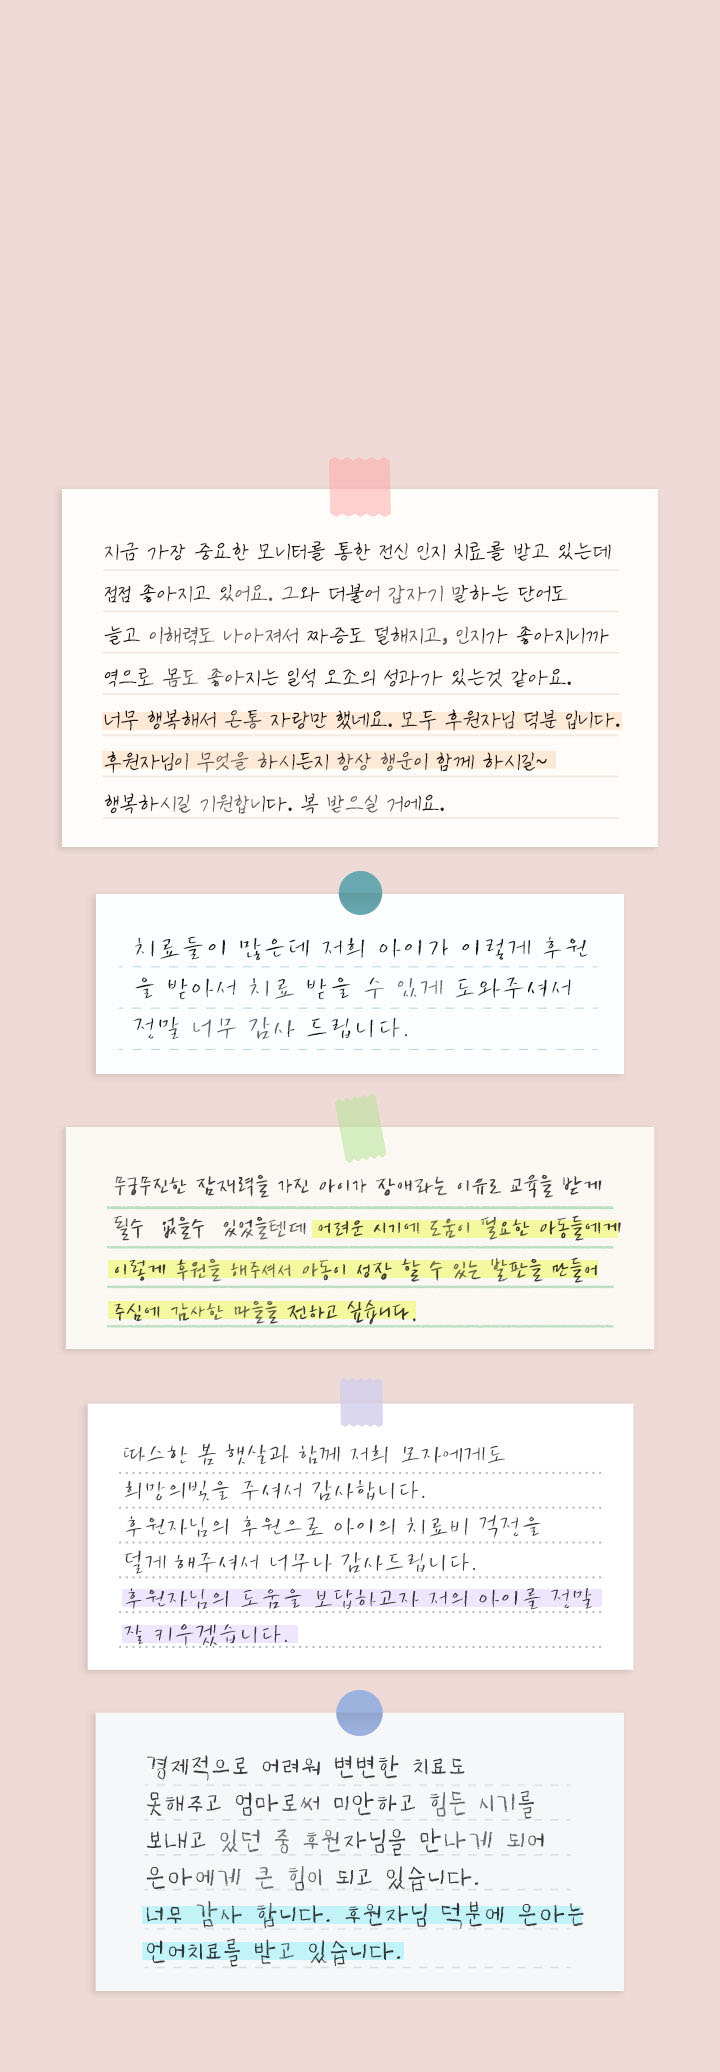 지금 가장 중요한 모니터를 통한 전신 인지 치료를 받고 있는데
점점 좋아지고 있어요. 그와 더불어 갑자기 말하는 단어도
늘고 이해력도 나아져서 짜증도 덜해지고, 인지가 좋아지니까
역으로 몸도 좋아지는 일석 오조의 성과가 있는것 같아요.
너무 행복해서 온통 자랑만 했네요. 모두 후원자님 덕분 입니다.
후원자님이 무엇을 하시든지 항상 행운이 함께 하시길~
행복하시길 기원합니다. 복 받으실 거에요.
치료들이 많은데 저희 아이가 이렇게 후원
을 받아서 치료 받을 수 있게 도와주셔서
정말 너무 감사 드립니다.
무궁무진한 잠재력을 가진 아이가 장애라는 이유로 교육을 받게
될수 없을수 있었을텐데 어려운 시기에 도움이 필요한 아동들에게
이렇게 후원을 해주셔서 아동이 성장 할 수 있는 발판을 만들어
주심에 감사한 마음을 전하고 싶습니다.
따스한 봄 햇살과 함께 저희 모자에게도
희망의빛을 주셔서 감사합니다.
후원자님의 후원으로 아이의 치료비 걱정을
덜게 해주셔서 너무나 감사드립니다.
후원자님의 도움을 보답하고자 저의 아이를 정말
잘 키우겠습니다.
경제적으로 어려워 변변한 치료도
못해주고 엄마로써 미안하고 힘든 시기를
보내고 있던 중 후원자님을 만나게 되어
은아에게 큰 힘이 되고 있습니다.
너무 감사 합니다. 후원자님 덕분에 은아는
언어치료를 받고 있습니다.